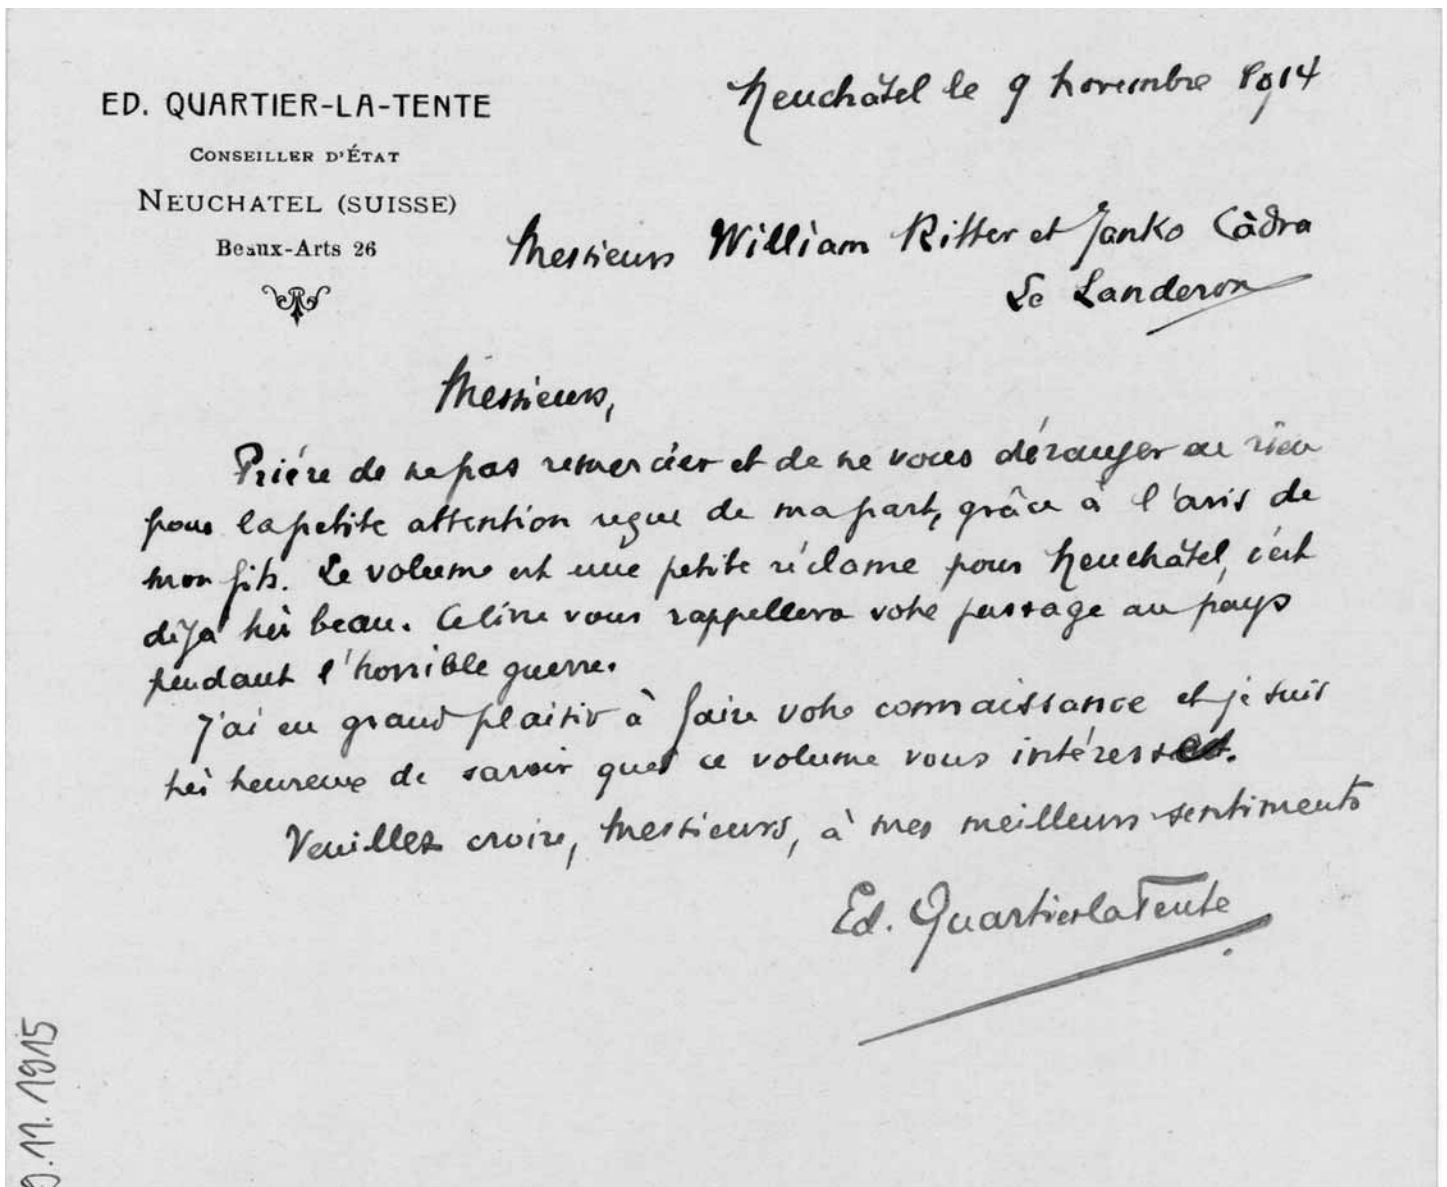 ED. QUARTIER-LA-TENTE
CONSEILLER D'ÉTAT
NEUCHATEL (SUISSE)
Beaux-Arts 26
Neuchâtel le 9 novembre 1914
Messieurs William Ritter et Janko Càdra
Le Landeron
Messieurs,
Prière de ne pas remercier et de ne vous déranger en rien
pour la petite attention reçue de ma part, grâce à l'avis de
mon fils. Le volume est une petite réclame pour Neuchâtel, c'est
déjà très beau. Ce livre vous rappellera votre passage au pays
pendant l'horrible guerre.
J'ai eu grand plaisir à faire votre connaissance et je suis
très heureux de savoir que ce volume vous intéresse.
Veuillez croire, Messieurs, à mes meilleurs sentiments
Ed. Quartier la Tente
9.11.1915